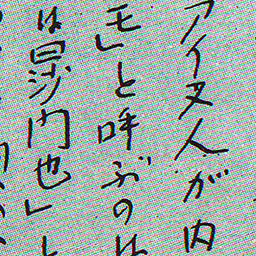 アイヌ人が内
モ」と呼ぶのは
は昆沙門也」